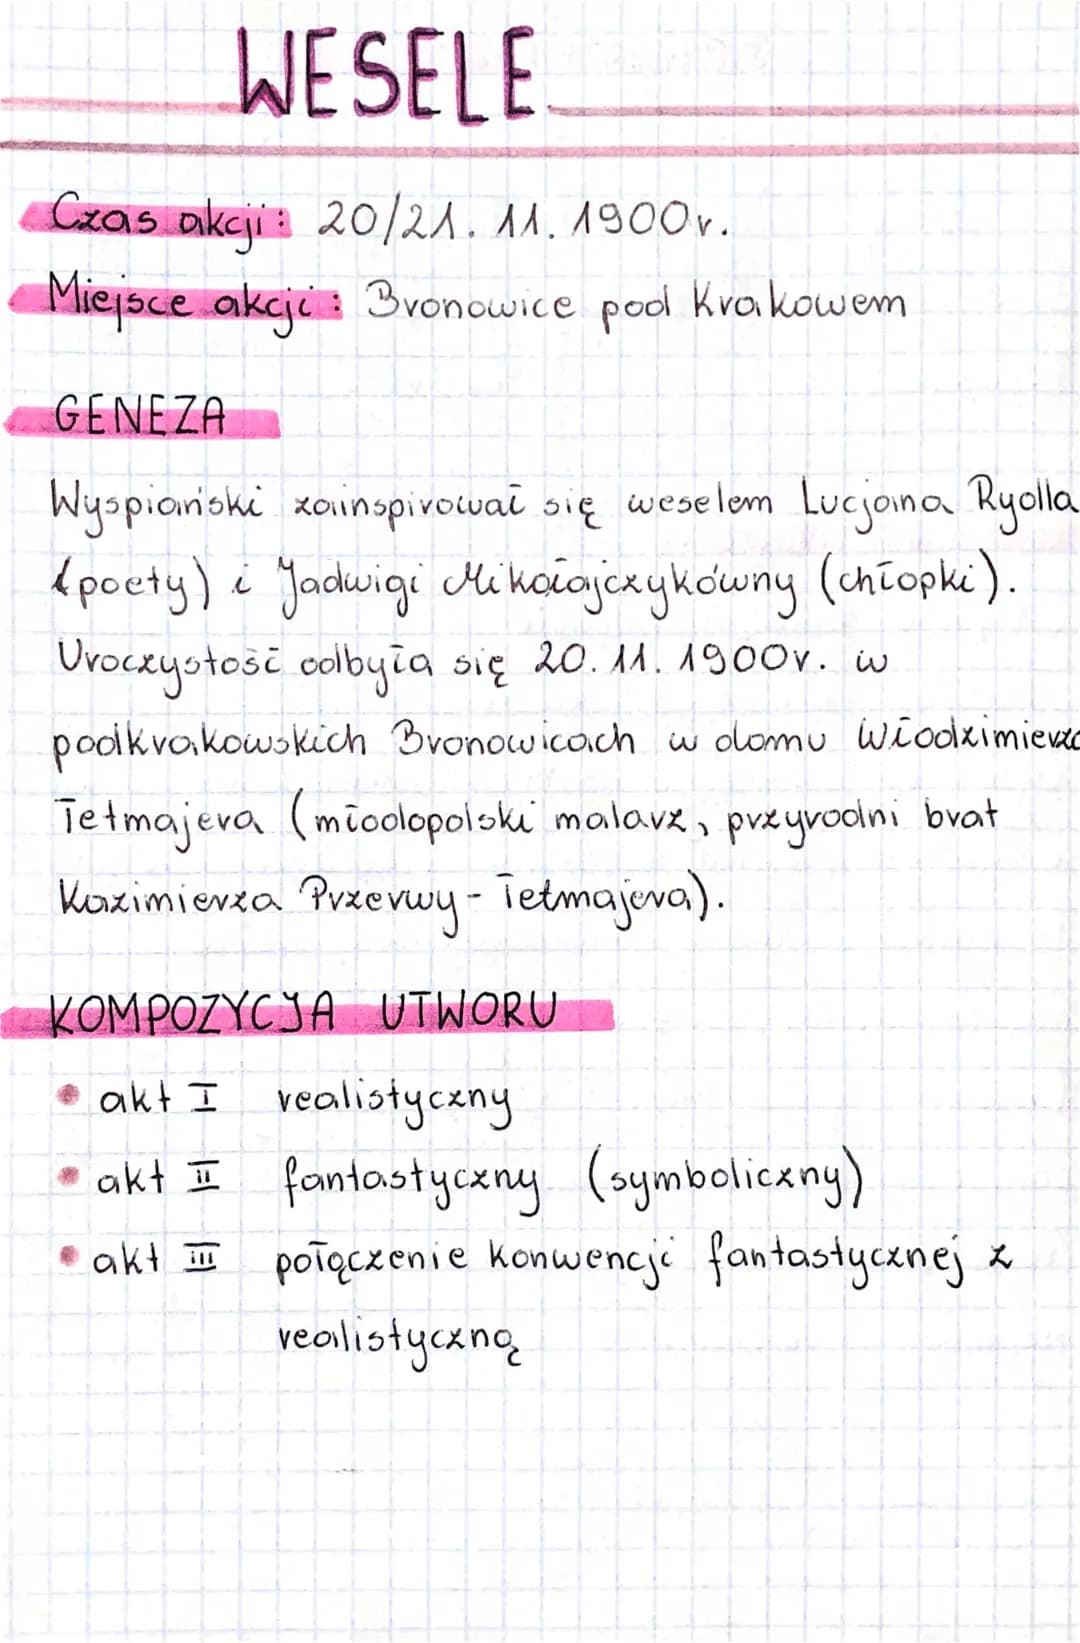 WESELE
Czas akcji: 20/21. 11. 1900r.
Miejsce akcji: Bronowice pod Krakowem
GENEZA
Wyspiański zainspirował się weselem Lucjana Rydla
(poety) i Jadwigi Mikołajczykówny (chłopki).
Uroczystość odbyła się 20. 11. 1900r. w
podkrakowskich Bronowicach w domu Włodzimierza
Tetmajera (młodopolski malarz, przyrodni brat
Kazimierza Przerwy-Tetmajera).
KOMPOZYCJA UTWORU
• akt I realistyczny
• akt II fantastyczny (symboliczny)
• akt III połączenie konwencji fantastycznej z
realistyczną